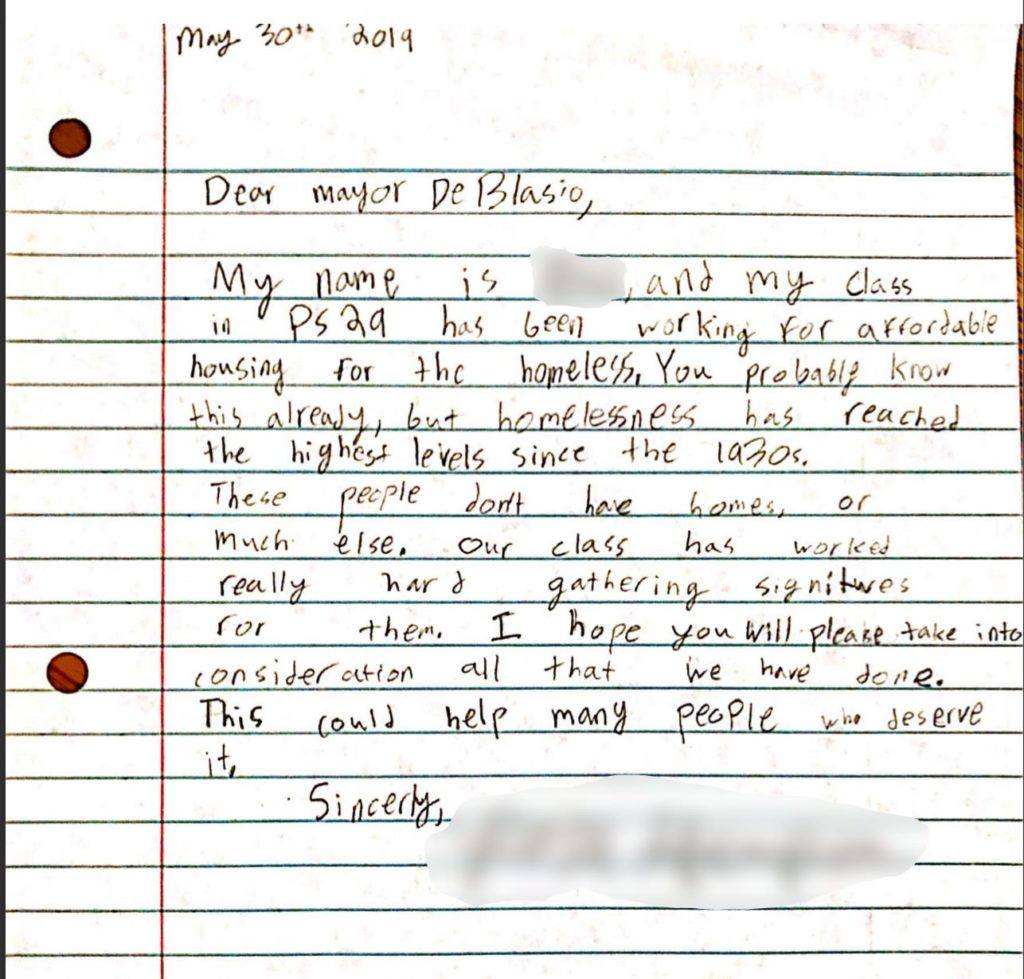 May 30th 2019
Dear mayor De Blasio,
My name is , and my class
in PS29 has been working for affordable
housing for the homeless. You probably know
this already, but homelessness has reached
the highest levels since the 1930s.
These people don't have homes, or
much else. Our class has worked
really hard gathering signitures
for them. I hope you will please take into
consideration all that we have done.
This could help many people who deserve
it.
Sincerly,